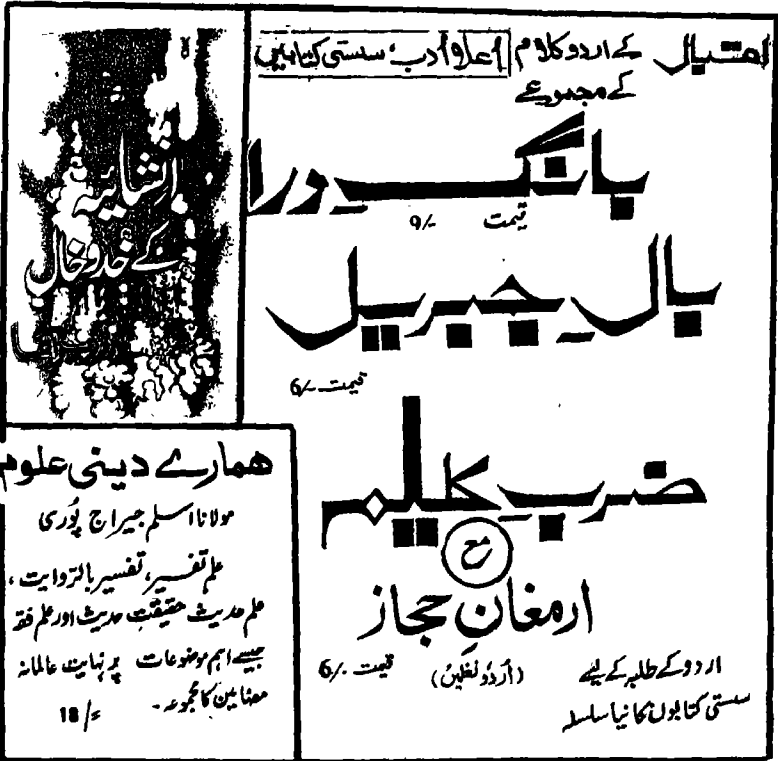 اقبال کے اردو کلام اعلا ادب، سستی کتابیں
کے مجموعے
بانگِ درا
قیمت 9/-
بالِ جبریل
قیمت 6/-
ضربِ کلیم
مع
ارمغانِ حجاز
(اُردو نظمیں) قیمت 6/-
اردو کے طلبہ کے لیے
سستی کتابوں کا نیا سلسلہ
انشائیہ
کے خدوخال
ھمارے دینی علوم
مولانا اسلم جیراج پُوری
علم تفسیر، تفسیر بالروایت،
علم حدیث حقیقتِ حدیث اور علم فقہ
جیسے اہم موضوعات پر نہایت عالمانہ
مضامین کا مجموعہ۔
18/=